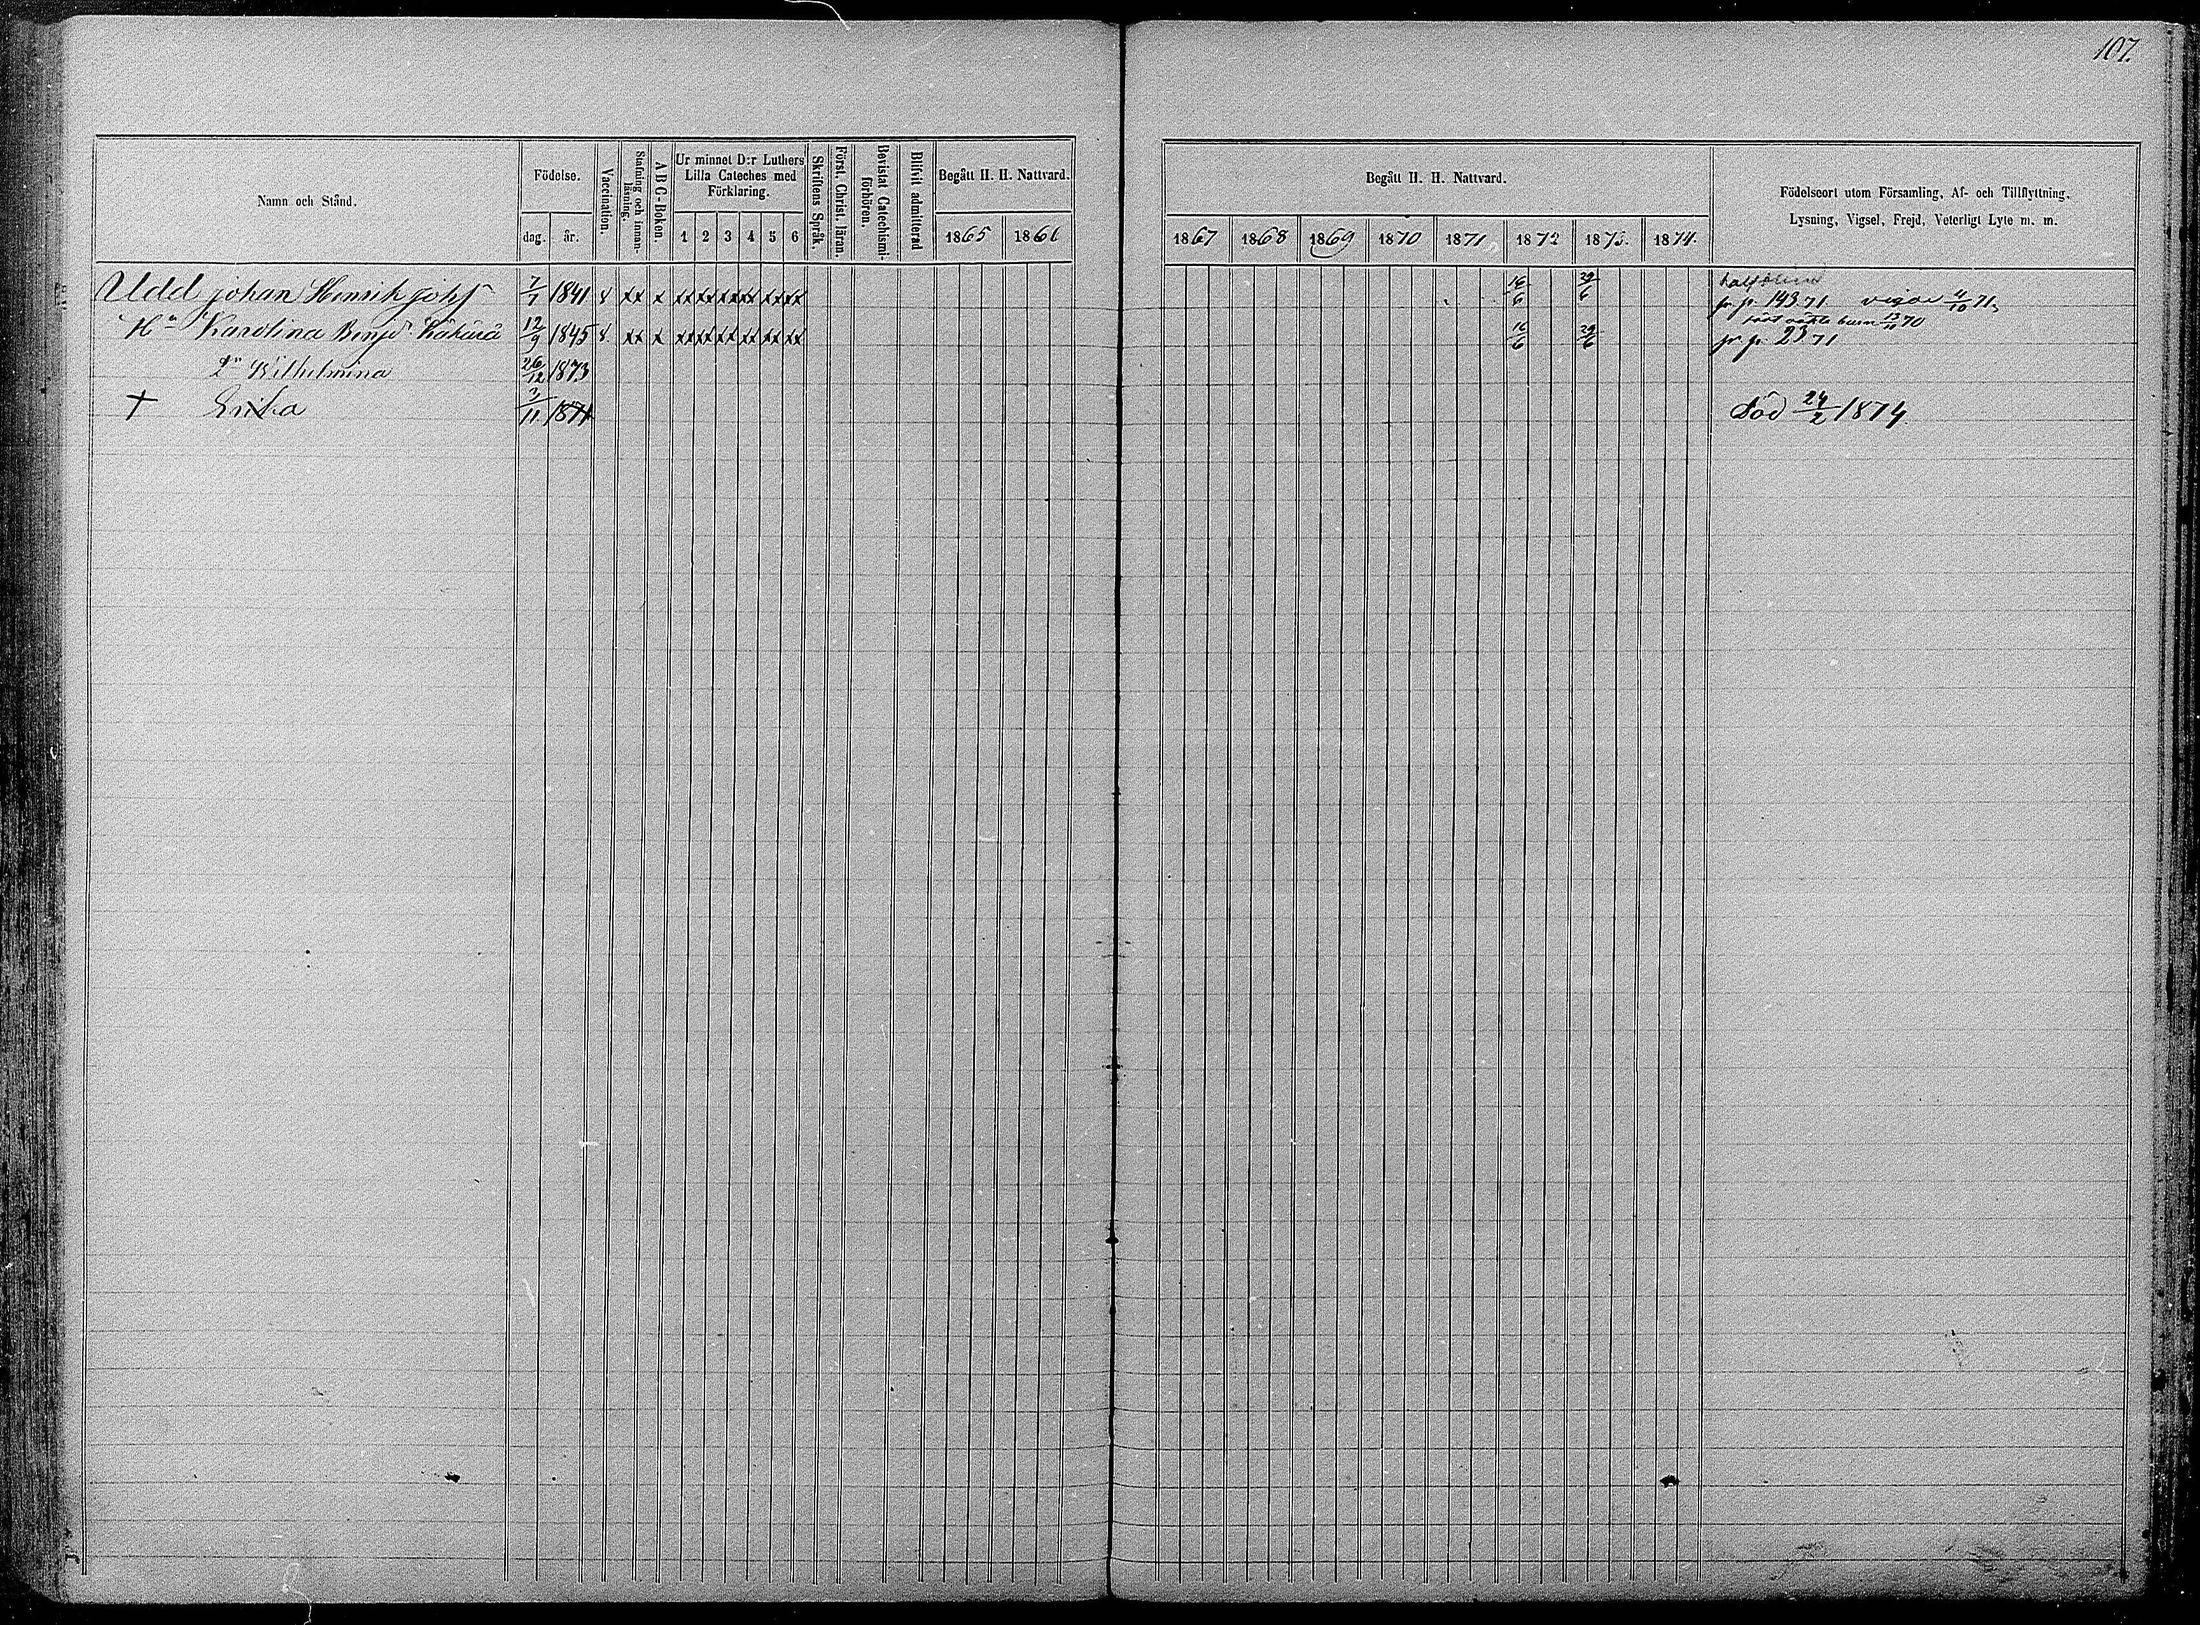 107.
Namn och Stånd.
Födelse.
dag. år.
Vaccination.
Stafning och innanläsning.
A B C-Boken.
Ur minnet D:r Luthers
Lilla Cateches med
Förklaring.
1 2 3 4 5 6
Skriftens Språk.
Först. Christ. läran.
Bevistat Catechismiförhören.
Blifvit admitterad
Begått H. H. Nattvard.
1865 1866
Begått H. H. Nattvard.
1867 1868 1869 1870 1871 1872 1873. 1874.
Födelseort utom Församling, Af- och Tillflyttning,
Lysning, Vigsel, Frejd, Veterligt Lyte m. m.
Udd Johan Henrik Johs 7/7 1841 x xx x xx xx xx xx xx xx 16/6 29/6 fr. p. 143 71 vigde 4/10 71
Hu Karolina Benjd 12/9 1845 x xx x xx xx xx xx xx xx 16/6 29/6 barn 13/11 70 fr. p. 23 71
Dr Wilhelmina 26/12 1873
+ Erika 3/11 1871 Död 24/2 1874.